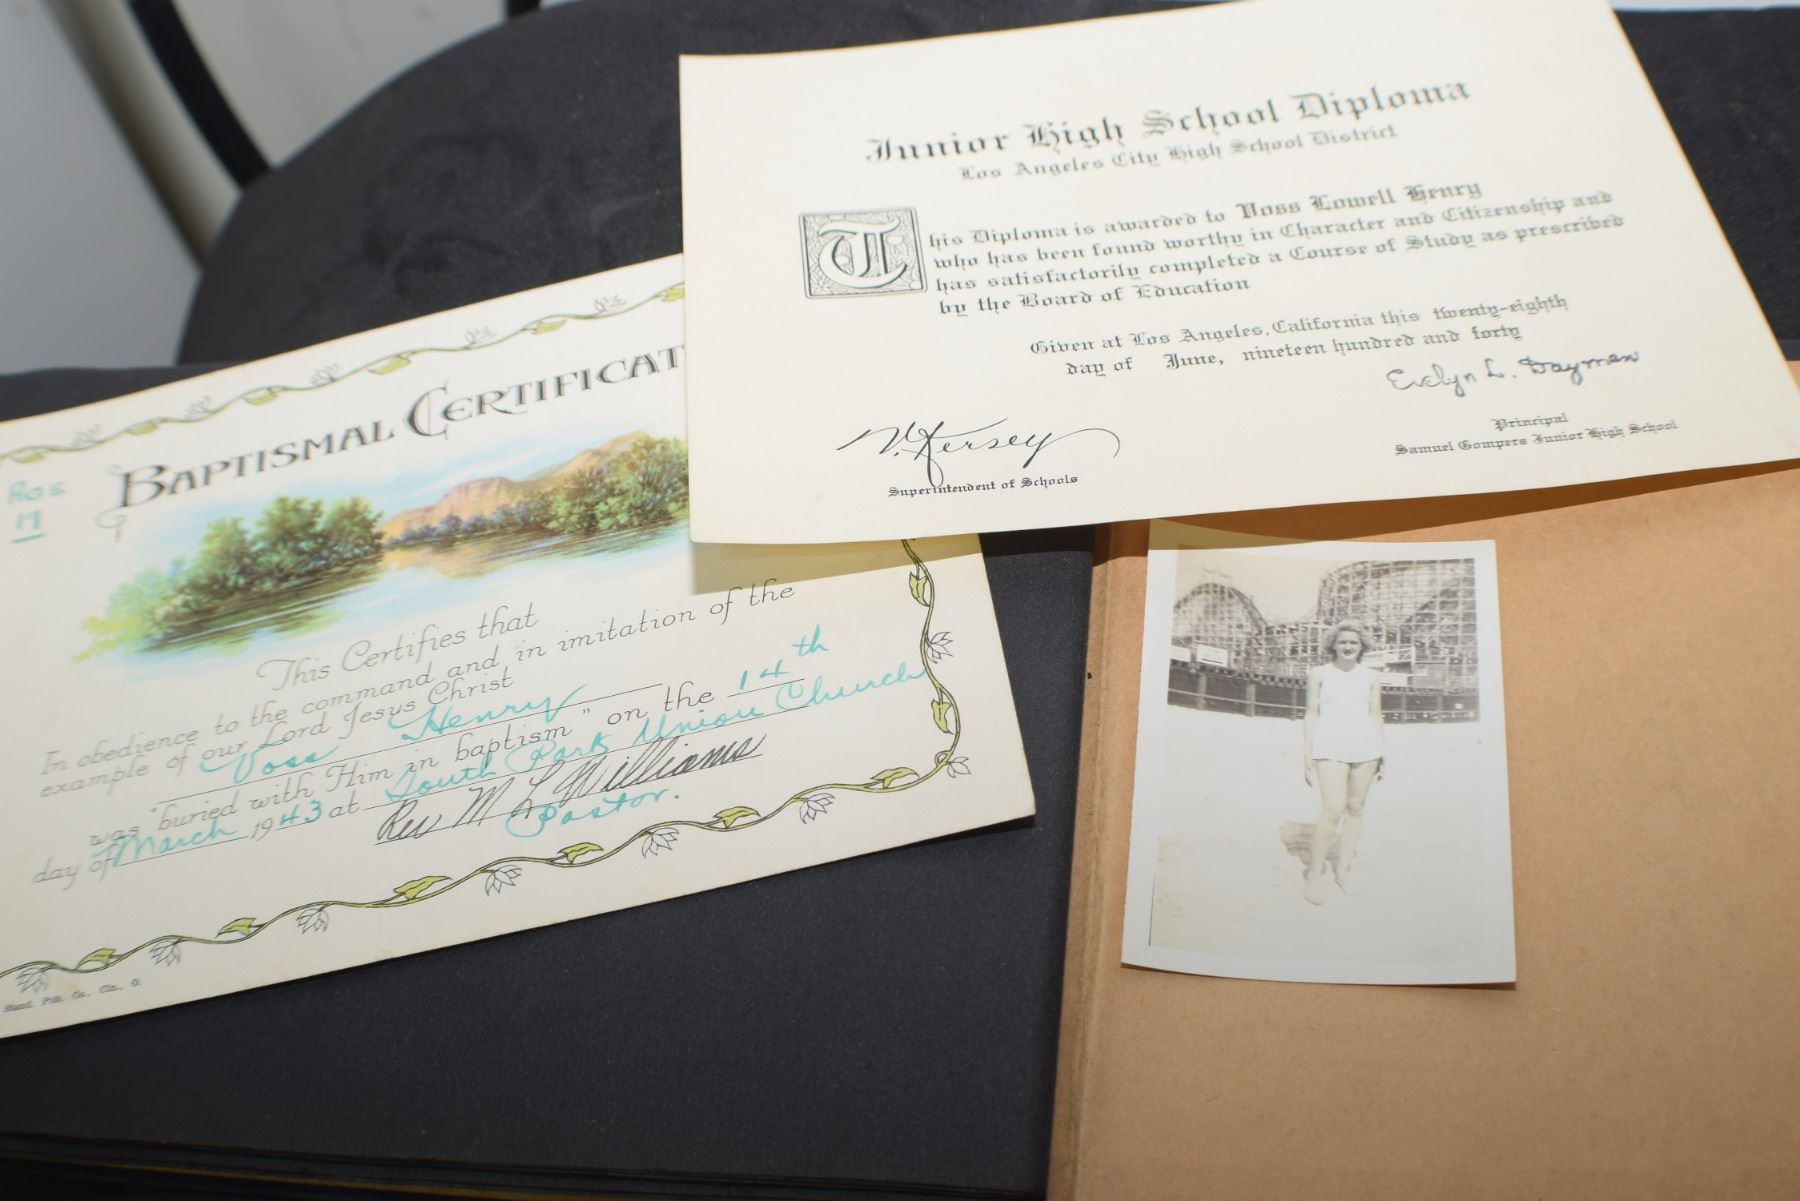 Junior High School Diploma
Los Angeles City High School District
This Diploma is awarded to Voss Lowell Henry
who has been found worthy in Character and Citizenship and
has satisfactorily completed a Course of Study as prescribed
by the Board of Education
Given at Los Angeles, California this twenty-eighth
day of June, nineteen hundred and forty
Evelyn L. Dayman
Principal
Samuel Gompers Junior High School
V. Kersey
Superintendent of Schools
BAPTISMAL CERTIFICAT
AGE
17
This Certifies that
In obedience to the command and in imitation of the
example of our Lord Jesus Christ
Voss Henry
was "buried with Him in baptism" on the 14th
day of March 1943 at South Park Union Church
Rev M L Williams
Pastor.
Stand. Pub. Co., Cin., O.